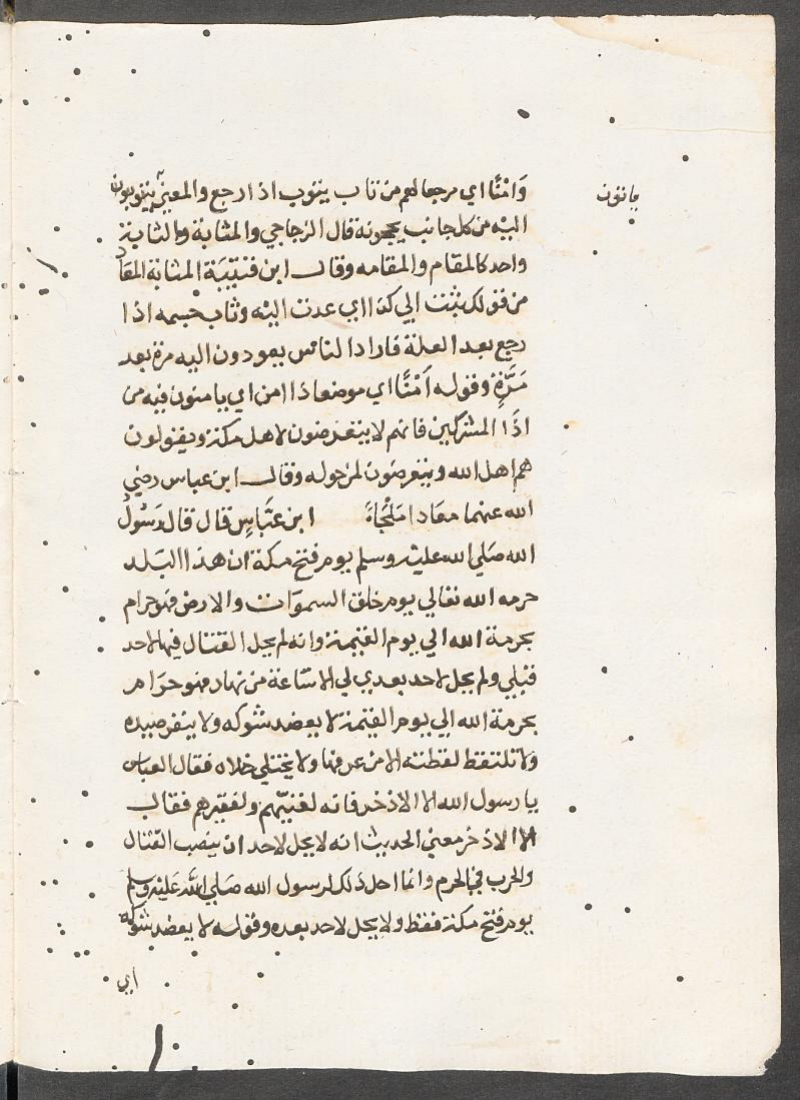 وَامْنًا اي مرجعا لهم من ثاب يثوب اذا رجع والمعني يثوبون
ياتون
اليه من كل جانب يحجونه قال الزجاجي والمثابة والثابة
واحد كالمقام والمقامه وقال ابن قتيبة المثابة المعاد
من قولك ثبت الي كذا اي عدت اليه وثاب جسمه اذا
رجع بعد العلة فاراد الناس يعودون اليه مرة بعد
مَرَّةٍ وقوله اَمْنًا اي موضعا ذا امن اي يامنون فيه من
اذا المشركين فانهم لا يتعرضون لاهل مكة ويقولون
هم اهل الله ويتعرضون لمن حوله وقال ابن عباس رضي
الله عنهما معادا مَلْجَاءً ابن عبَّاسٍ قال قال رَسُولُ
الله صَلي الله عليه وسلم يوم فتح مكة ان هذا البَلد
حرمه الله تعالي يوم خلق السموات والارض فهو حرام
بحرمة الله الي يوم القيمة وانه لم يحل القتال فيها لاحد
قبلي ولم يحل لاحد بعدي لي الا سَاعة من نهار فهو حرام
بحرمة الله الي يوم القيمة لا يعضد شوكه ولا ينفر صيده
ولا تلتقط لقطته الا من عرفها ولا يختلي خلاه فقال العباس
يا رسول الله الا الاذخر فانه لقينهم ولفقيرهم فقال
الا الاذخر معني الحديث انه لا يحل لاحد ان ينصب القتال
والحرب في الحرم وانما احل ذلك لرسول الله صَلي اللَّه عَليه وسلم
يوم فتح مكة فقط ولا يحل لاحد بعده وقوله لا يعضد شوكه
اي